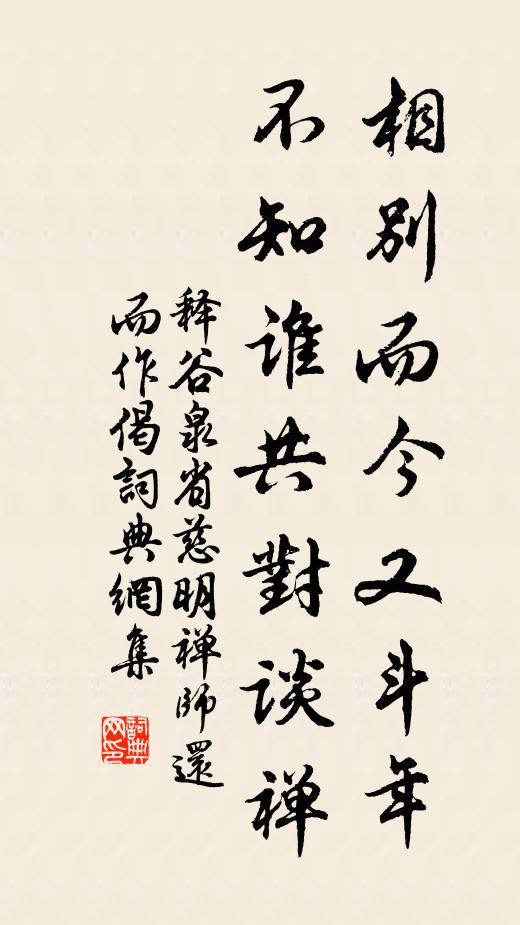 相別而今又斗年
不知誰共對談禅
释谷泉省慈明禅師還
而作偈詞典網集
詞典网印